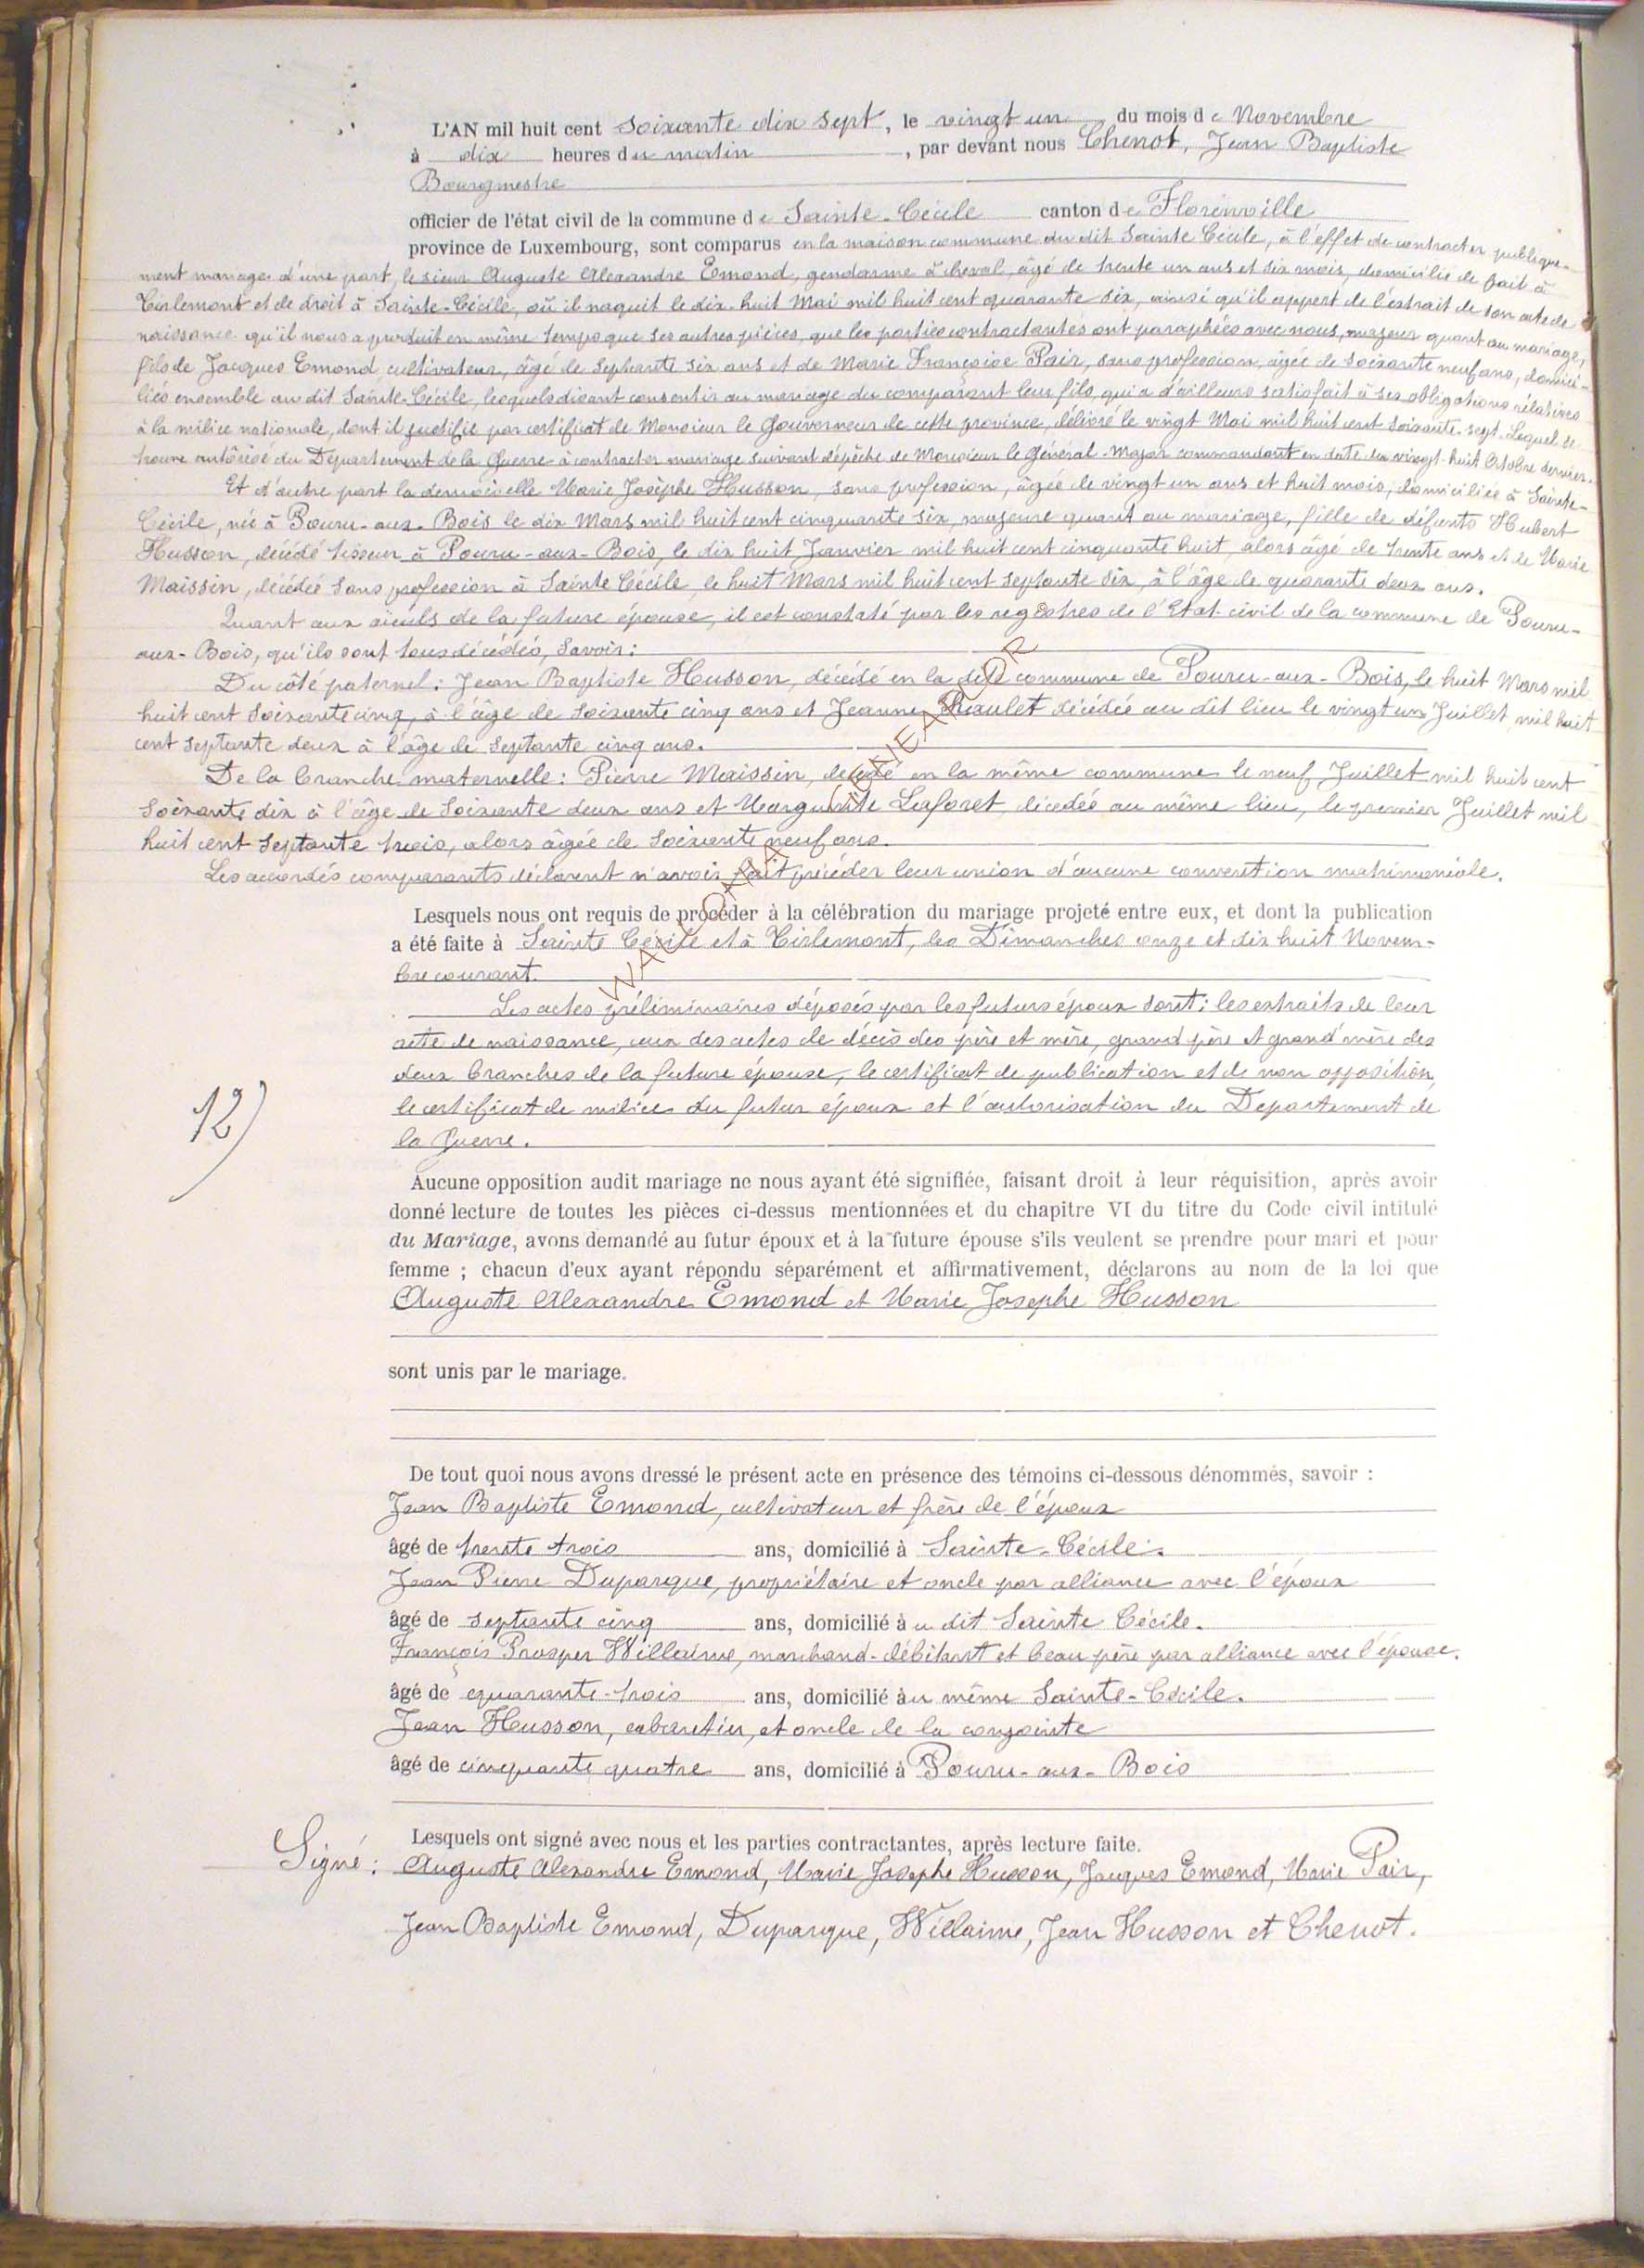 L'AN mil huit cent soixante dix sept, le vingt un du mois de Novembre
à dix heures du matin, par devant nous Chenot, Jean Baptiste
Bourgmestre
officier de l'état civil de la commune de Sainte-Cécile canton de Florenville
province de Luxembourg, sont comparus en la maison commune du dit Sainte Cécile, à l'effet de contracter publique-
ment mariage, d'une part, le sieur Auguste Alexandre Emond, gendarme à cheval, âgé de trente un ans et six mois, domicilié de fait à
Tirlemont et de droit à Sainte-Cécile, où il naquit le dix-huit Mai mil huit cent quarante six, ainsi qu'il appert de l'extrait de son acte de
naissance qu'il nous a produit en même temps que ses autres pièces, que les parties contractantes ont paraphées avec nous, majeur quant au mariage,
fils de Jacques Emond, cultivateur, âgé de septante six ans et de Marie Françoise Pair, sans profession, âgée de soixante neuf ans, domici-
liés ensemble au dit Sainte-Cécile, lesquels disant consentir au mariage du comparant leur fils, qui a d'ailleurs satisfait à ses obligations rélatives
à la milice nationale, dont il justifie par certificat de Monsieur le Gouverneur de cette province, délivré le vingt Mai mil huit cent soixante-sept. Lequel se
trouve autorisé du Département de la Guerre à contracter mariage suivant dépêche de Monsieur le Général-Major commandant en date du vingt-huit Octobre dernier.
Et d'autre part la demoiselle Marie Josèphe Husson, sans profession, âgée de vingt un ans et huit mois, domiciliée à Sainte-
Cécile, née à Pouru-aux-Bois le dix Mars mil huit cent cinquante six, majeure quant au mariage, fille de défunts Hubert
Husson, décédé tisseur à Pouru-aux-Bois, le dix huit Janvier mil huit cent cinquante huit, alors âgé de trente ans et de Marie
Maissin, décédée sans profession à Sainte Cécile, le huit Mars mil huit cent septante six, à l'âge de quarante deux ans.
Quant aux aïeuls de la future épouse, il est constaté par les registres de l'Etat-civil de la commune de Pouru-
aux-Bois, qu'ils sont tous décédés, Savoir:
Du côté paternel: Jean Baptiste Husson, décédé en la dite commune de Pouru-aux-Bois, le huit Mars mil
huit cent soixante cinq, à l'âge de soixante cinq ans et Jeanne Raulet décédée au dit lieu le vingt un Juillet mil huit
cent septante deux à l'âge de septante cinq ans.
De la branche maternelle: Pierre Maissin, décédé en la même commune le neuf Juillet mil huit cent
soixante dix à l'âge de soixante deux ans et Marguerite Laforet, décédée au même lieu, le premier Juillet mil
huit cent septante trois, alors âgée de soixante neuf ans.
Les accordés comparants déclarent n'avoir fait précéder leur union d'aucune convention matrimoniale.
Lesquels nous ont requis de procéder à la célébration du mariage projeté entre eux, et dont la publication
a été faite à Sainte Cécile et à Tirlemont, les Dimanches onze et dix huit Novem-
bre courant.
Les actes préliminaires déposés par les futurs époux sont: les extraits de leur
acte de naissance, ceux des actes de décès des père et mère, grand père et grand'mère des
deux branches de la future épouse, le certificat de publication et de non opposition,
le certificat de milice du futur époux et l'autorisation du Departement de
la Guerre.
12)
Aucune opposition audit mariage ne nous ayant été signifiée, faisant droit à leur réquisition, après avoir
donné lecture de toutes les pièces ci-dessus mentionnées et du chapitre VI du titre du Code civil intitulé
du Mariage, avons demandé au futur époux et à la future épouse s'ils veulent se prendre pour mari et pour
femme ; chacun d'eux ayant répondu séparément et affirmativement, déclarons au nom de la loi que
Auguste Alexandre Emond et Marie Josephe Husson
sont unis par le mariage.
De tout quoi nous avons dressé le présent acte en présence des témoins ci-dessous dénommés, savoir :
Jean Baptiste Emond, cultivateur et frère de l'époux
âgé de trente trois ans, domicilié à Sainte-Cécile.
Jean Pierre Duparque, propriétaire et oncle par alliance avec l'époux
âgé de septante cinq ans, domicilié au dit Sainte Cécile.
François Prosper Willaime, marchand-débitant et beau père par alliance avec l'épouse.
âgé de quarante-trois ans, domicilié au même Sainte-Cécile.
Jean Husson, cabaretier, et oncle de la conjointe
âgé de cinquante quatre ans, domicilié à Pouru-aux-Bois
Lesquels ont signé avec nous et les parties contractantes, après lecture faite.
Signé: Auguste Alexandre Emond, Marie Josephe Husson, Jacques Emond, Marie Pair,
Jean Baptiste Emond, Duparque, Willaime, Jean Husson et Chenot.